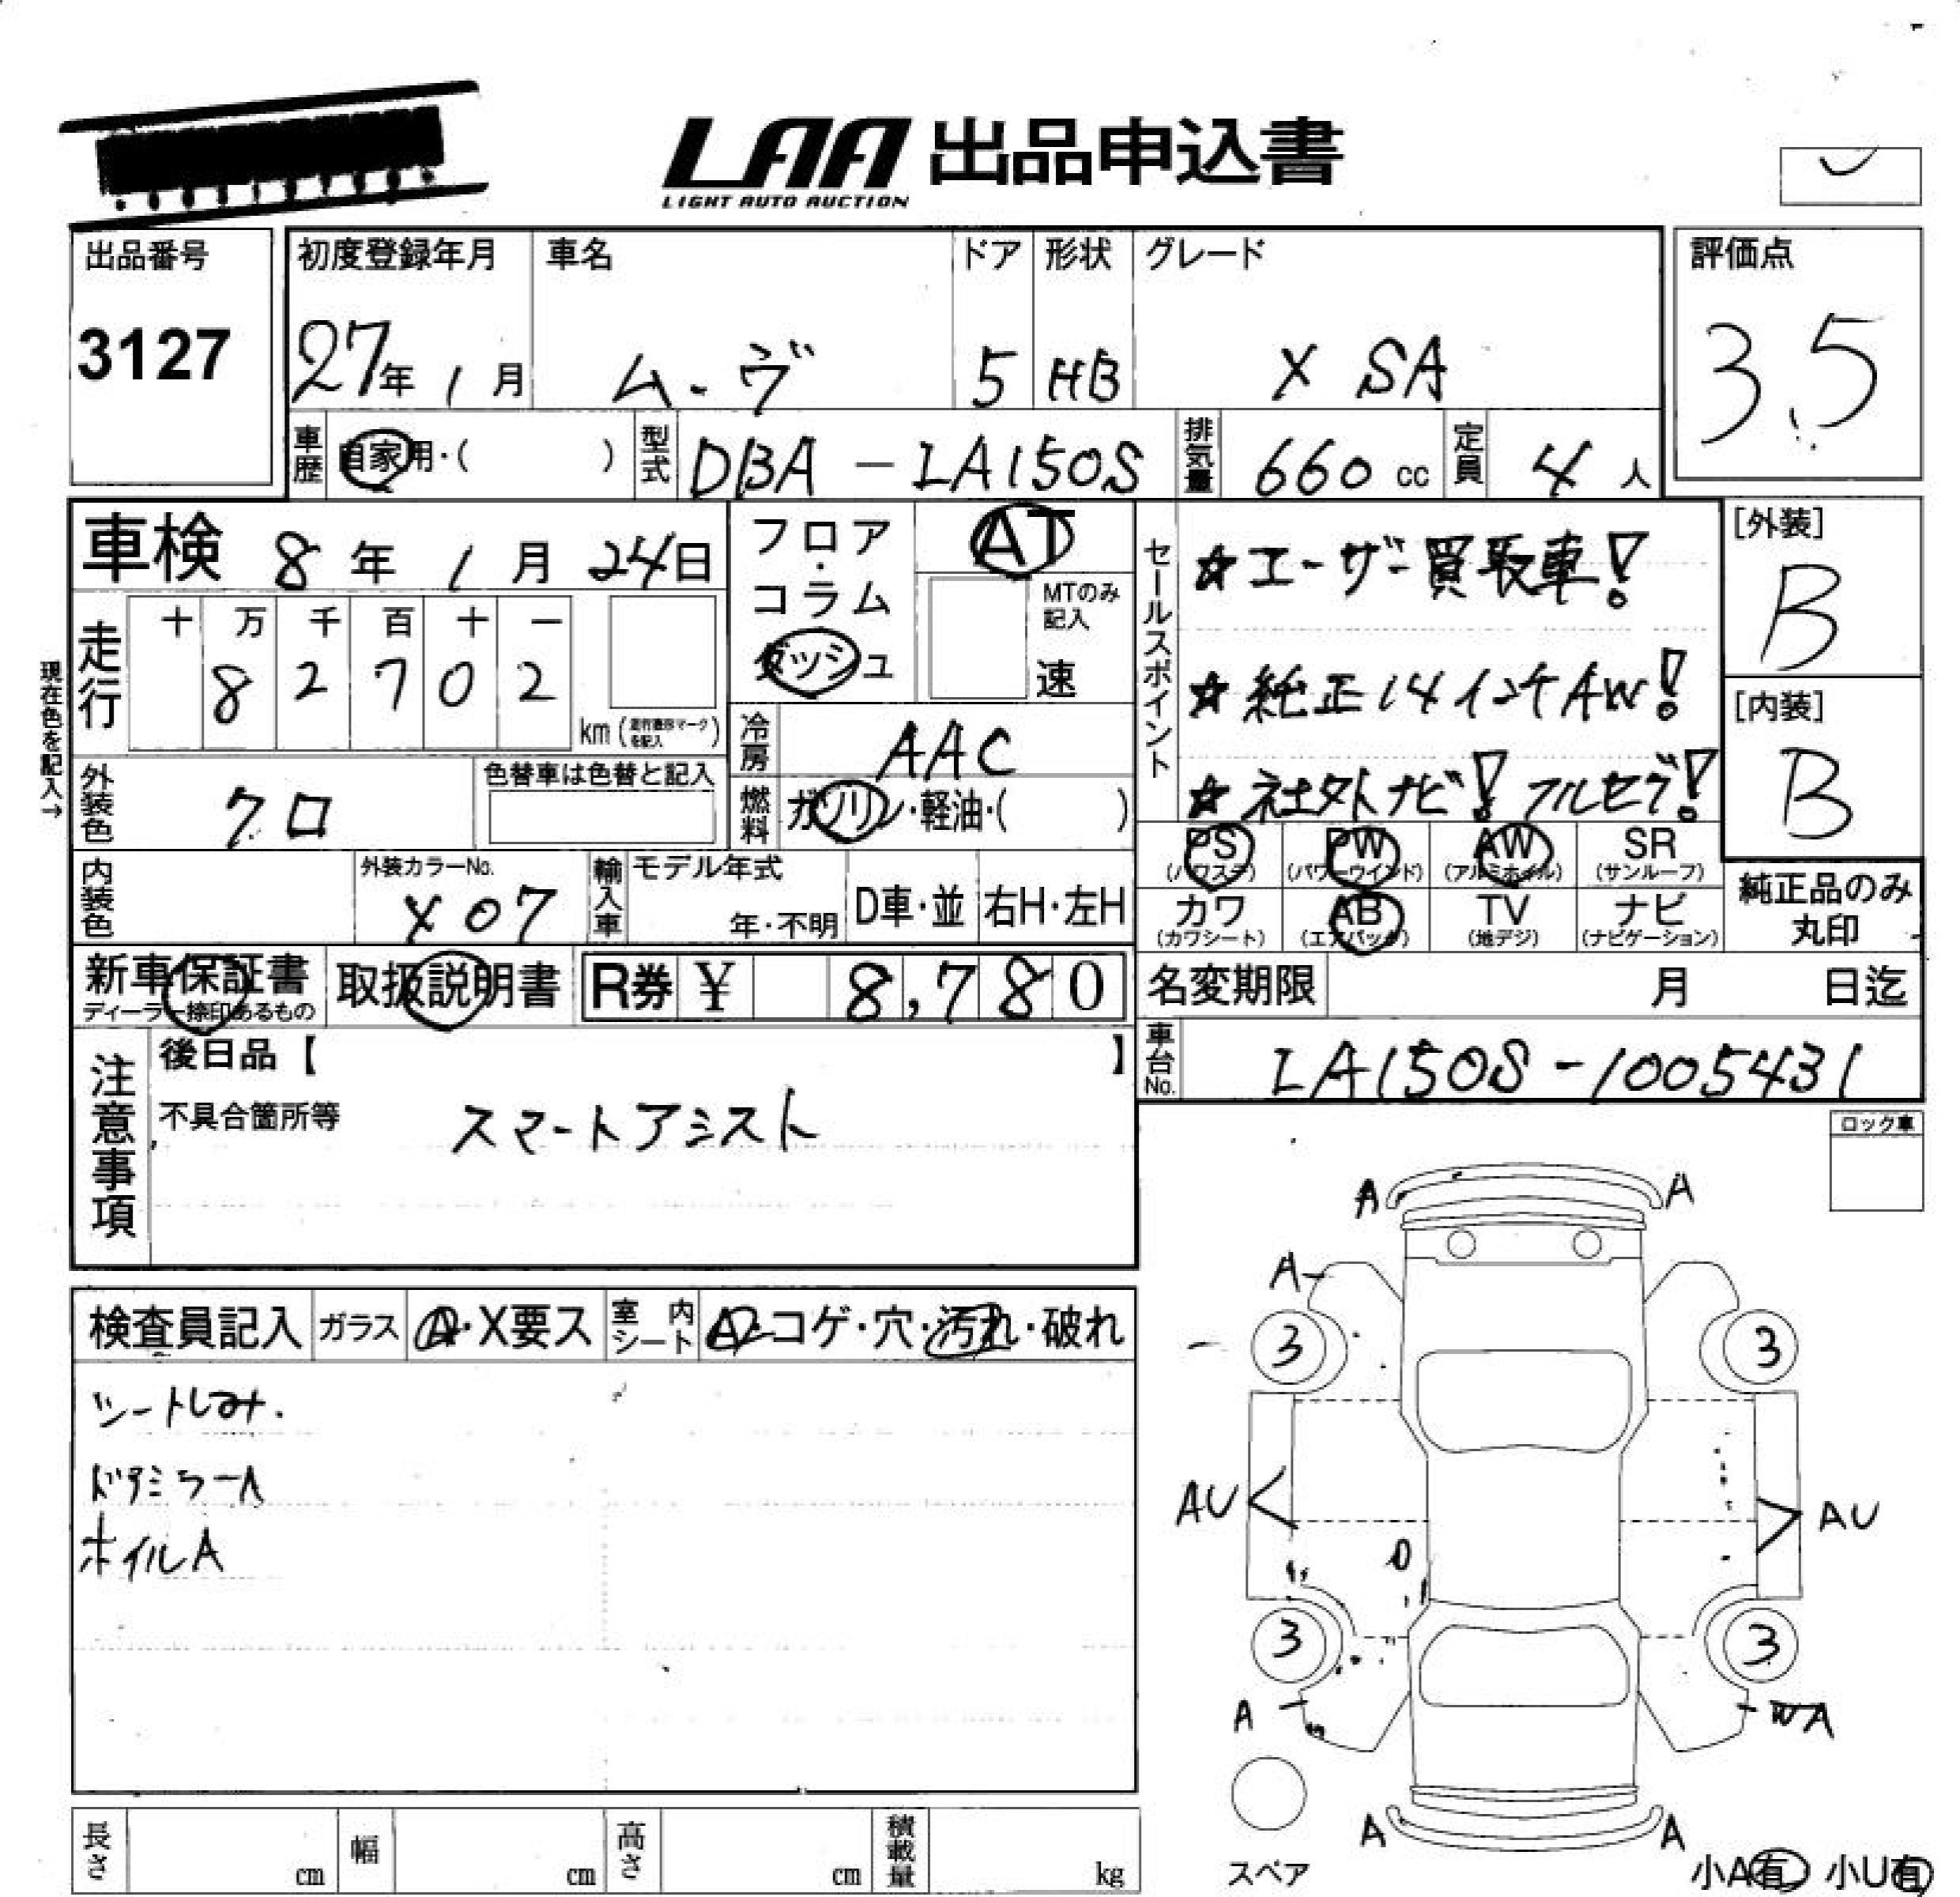 LAA 出品申込書
LIGHT AUTO AUCTION
出品番号
3127
初度登録年月
27年 1月
車名
ムーヴ
ドア
5
形状
HB
グレード
X SA
評価点
3.5
車歴
自家用・( )
型式
DBA-LA150S
排気量
660 cc
定員
4 人
車検 8年 1月 24日
フロア・コラム
ダッシュ
AT
MTのみ記入
速
セールスポイント
☆ユーザー買取車!
☆純正14インチAW!
☆社外ナビ! フルセグ!
[外装]
B
[内装]
B
現在色を記入→
走行
十 万 千 百 十 一
8 2 7 0 2
km
冷房
AAC
外装色
クロ
色替車は色替と記入
燃料
ガソリン・軽油・( )
PS
(パワステ)
PW
(パワーウインド)
AW
(アルミホイル)
SR
(サンルーフ)
内装色
外装カラーNo.
X07
輸入車
モデル年式
年・不明
D車・並
右H・左H
カワ
(カワシート)
AB
(エアバック)
TV
(地デジ)
ナビ
(ナビゲーション)
純正品のみ
丸印
新車保証書
ディーラー捺印あるもの
取扱説明書
R券 ¥ 8,780
名変期限 月 日迄
注意事項
後日品【 】
不具合箇所等
スマートアシスト
車台No.
LA150S-1005431
ロック車
検査員記入
ガラス
A・X要ス
室内シート
A・コゲ・穴・汚れ・破れ
シートしみ.
ドアミラーA
ホイルA
A A
A
3 3
AU AU
3 3
A A
A A
スペア
小A有 小U有
長さ cm
幅 cm
高さ cm
積載量 kg